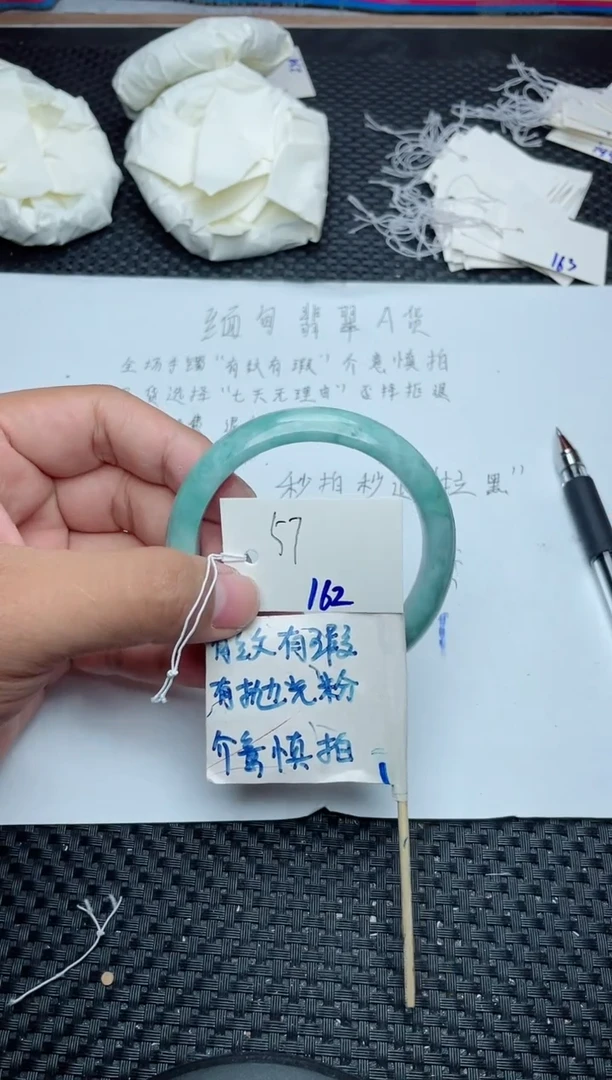 缅甸翡翠A货
全场手镯“有纹有瑕”介意慎拍
货选择“七天无理由”否择拒退
秒拍秒退“拉黑”
163
57
162
有纹有瑕
有抛光粉
介意慎拍